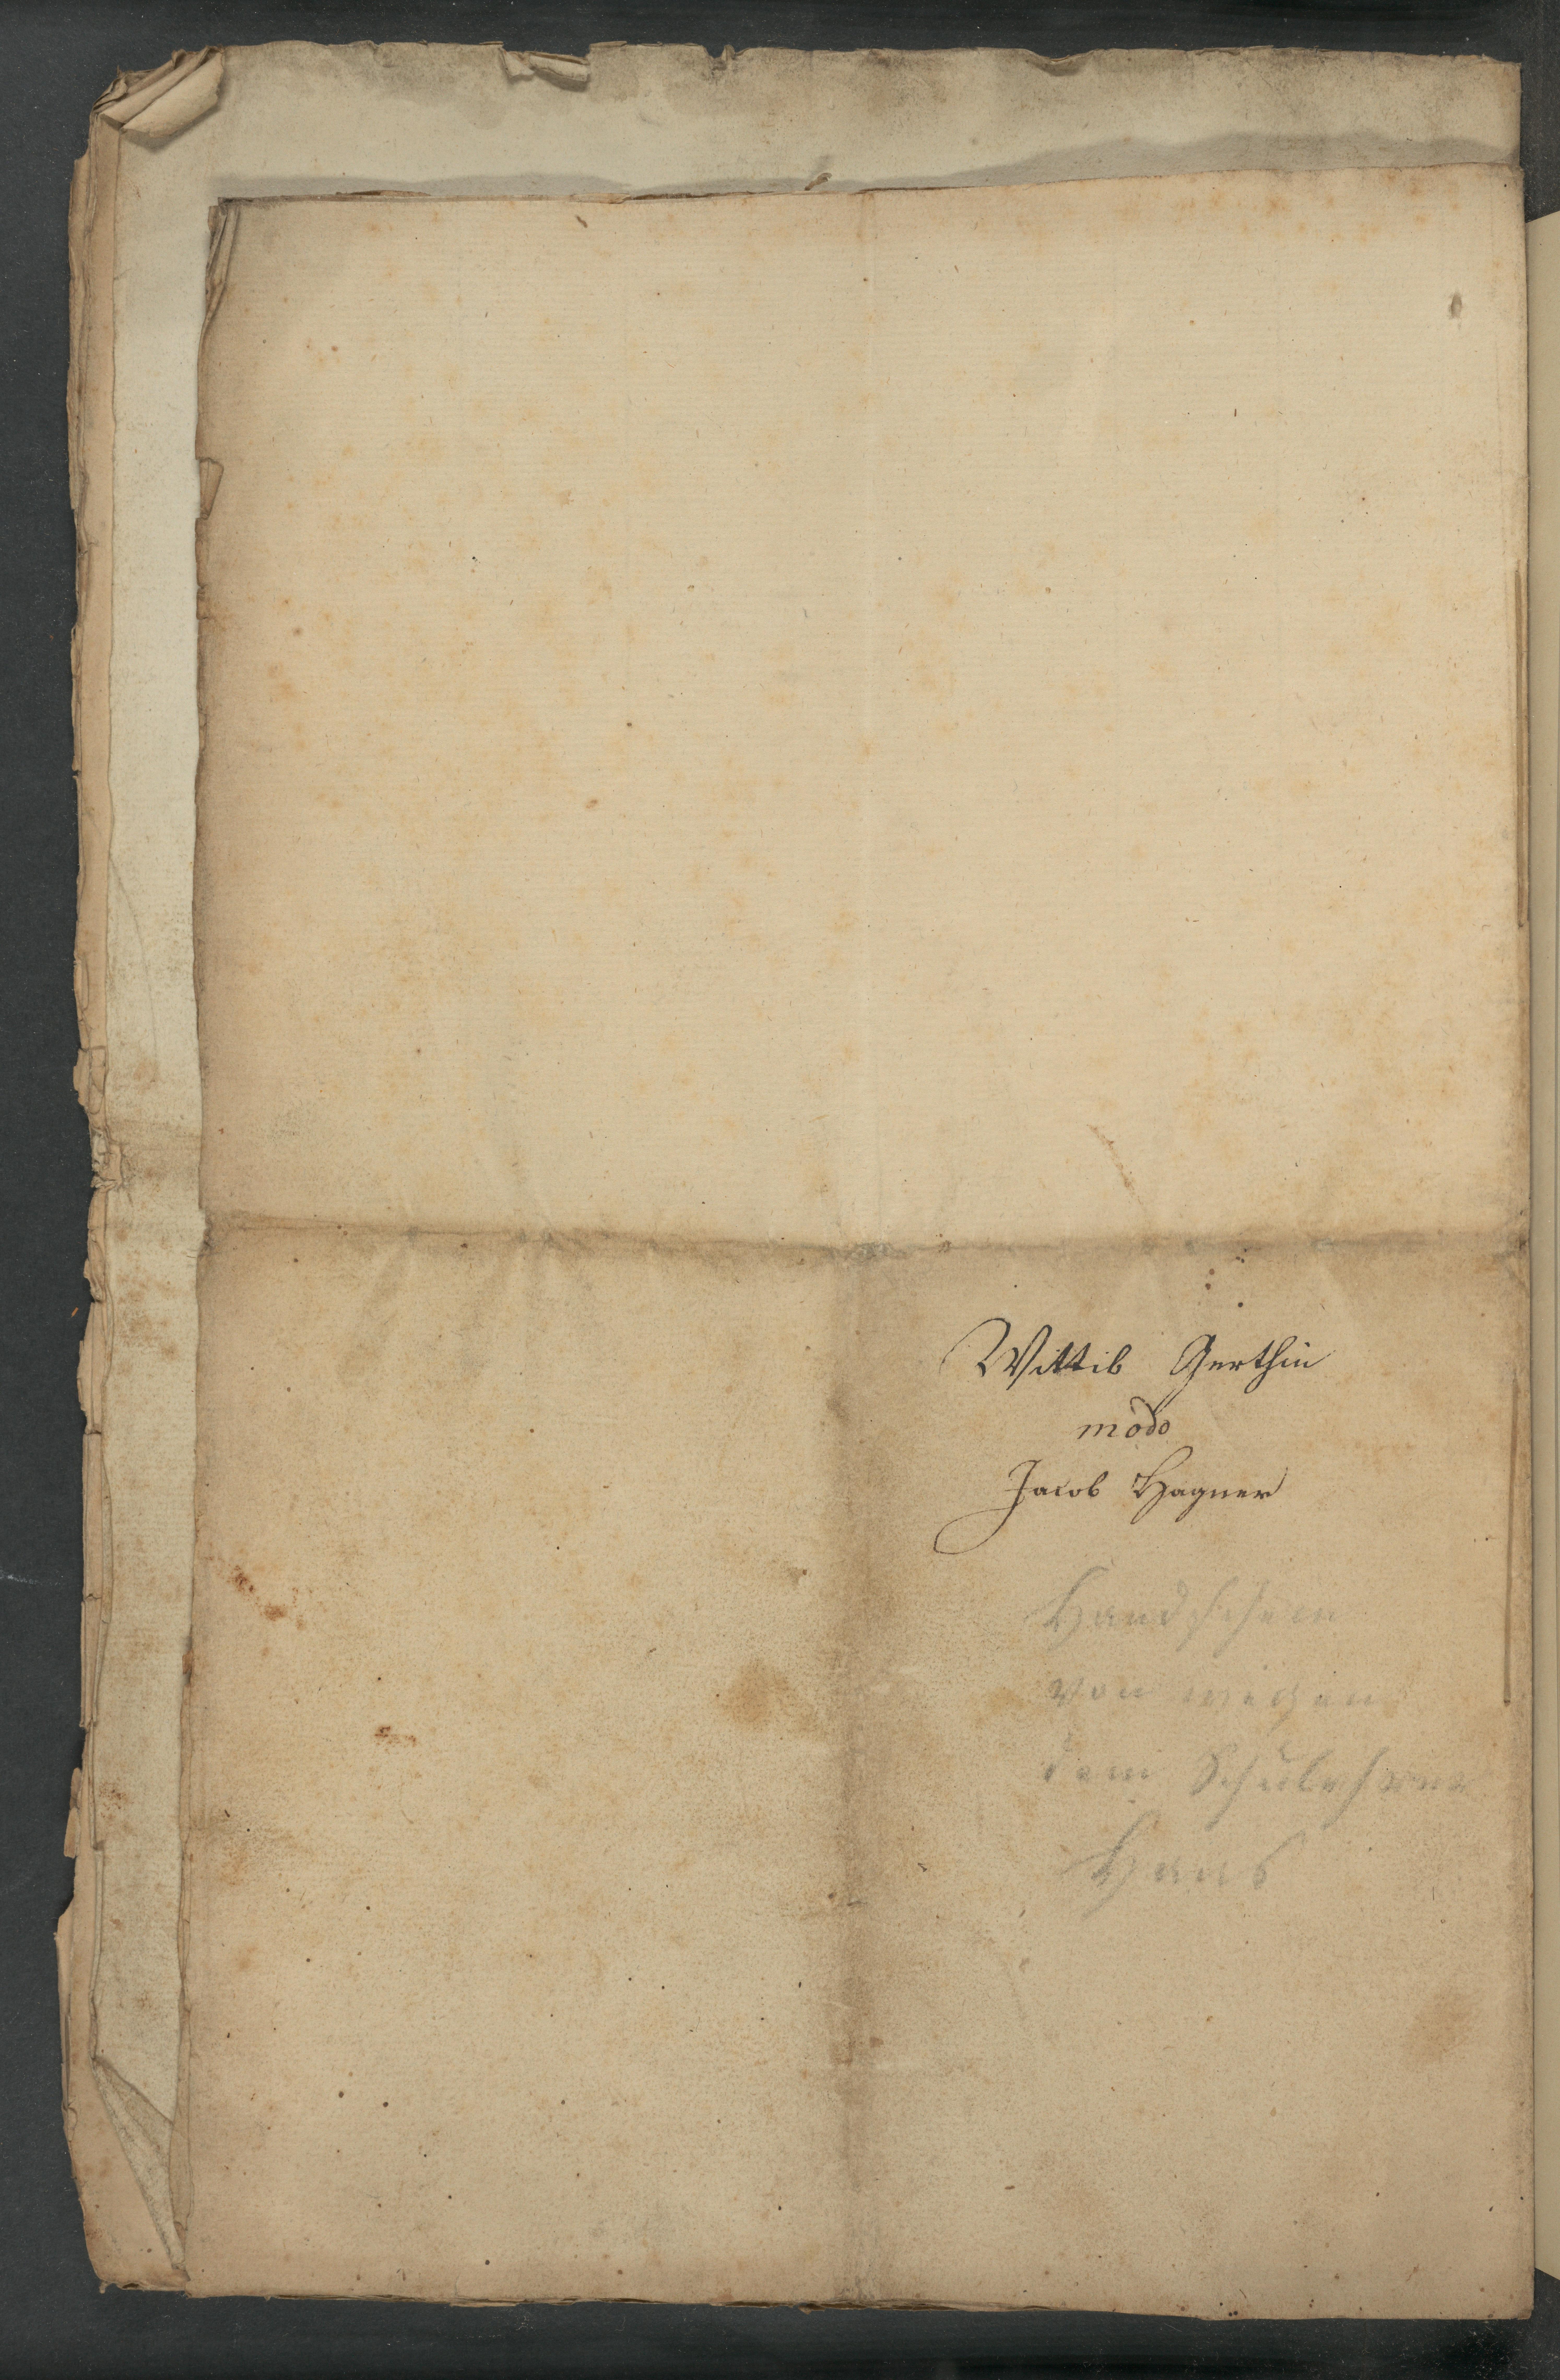 Wittib Gerthin
modo
Jacob Hagner
Handschein
von wegen
dem
Haus